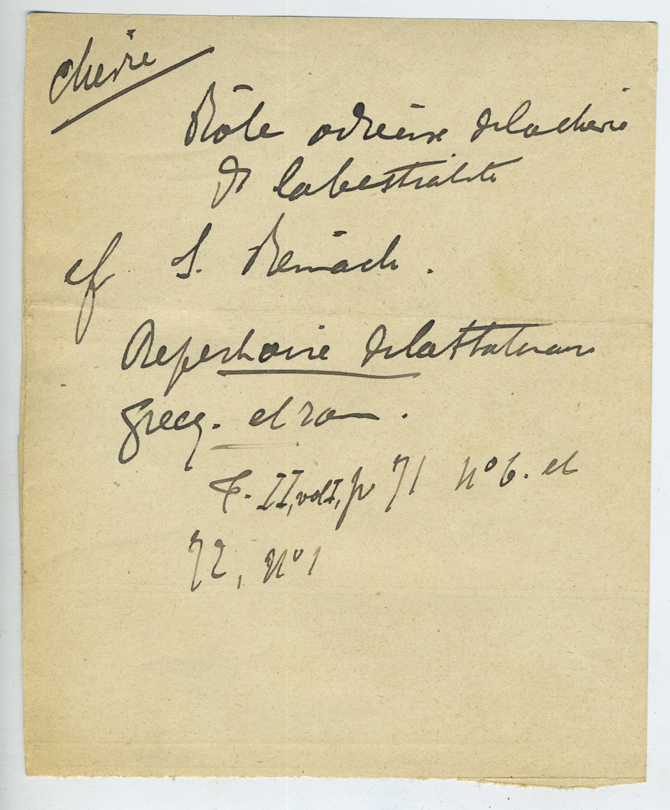 chèvre
Rôle odieux de la chèvre
de la bestialité
cf S. Reinach.
Repertoire de la Statuaire
grecq. et rom.
T. II, vol I, p 71 n° 6. et
72, n° 1